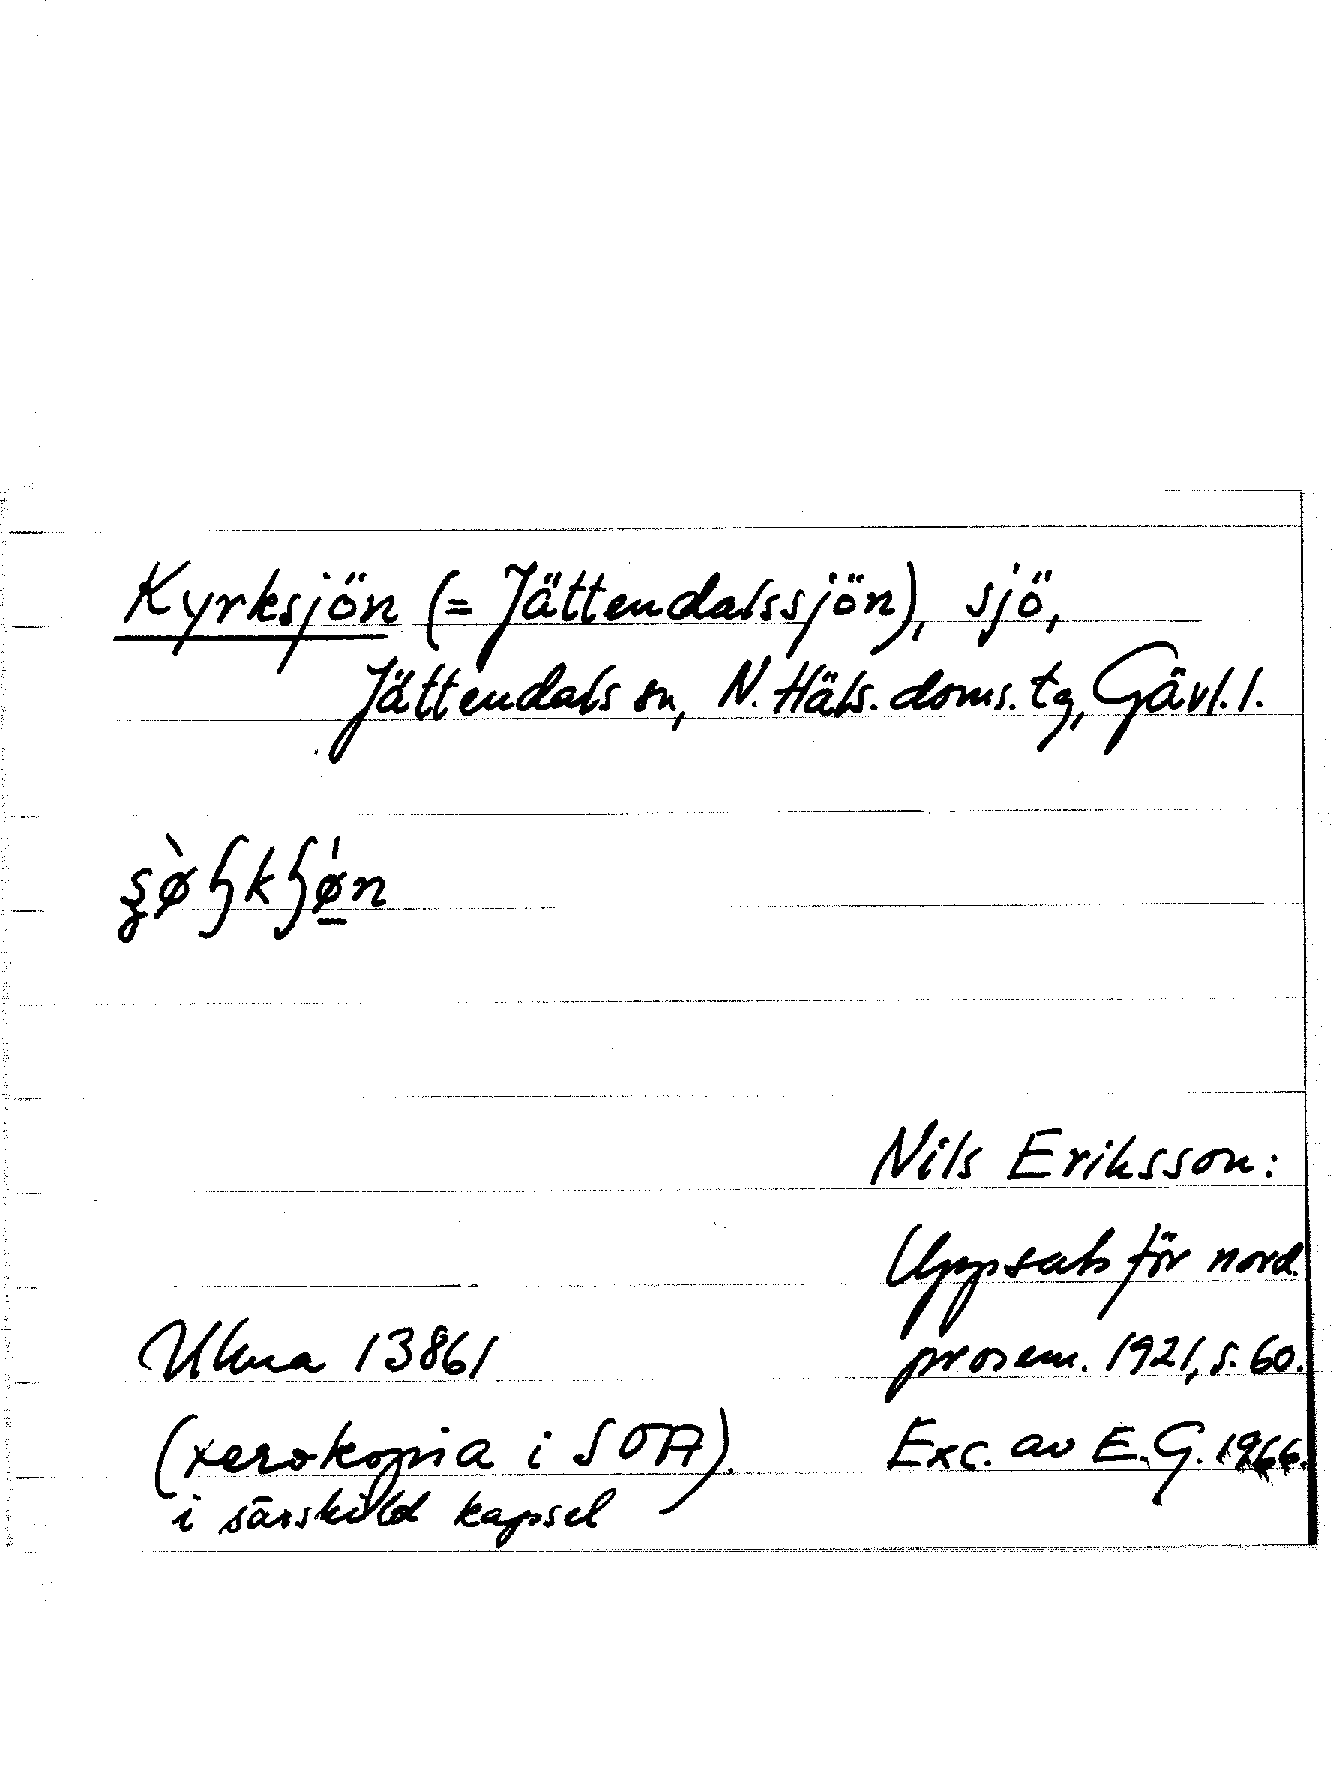 Kyrksjön (= Jättendalssjön), sjö,
Jättendals sn, N. Häls. doms. tg, Gävl. l.
Nils Eriksson:
Uppsats för nord.
prosem. 1921, s. 60.
Exc. av E. G. 1966.
Ulma 13861
(xerokopia i SOA).
i särskild kapsel